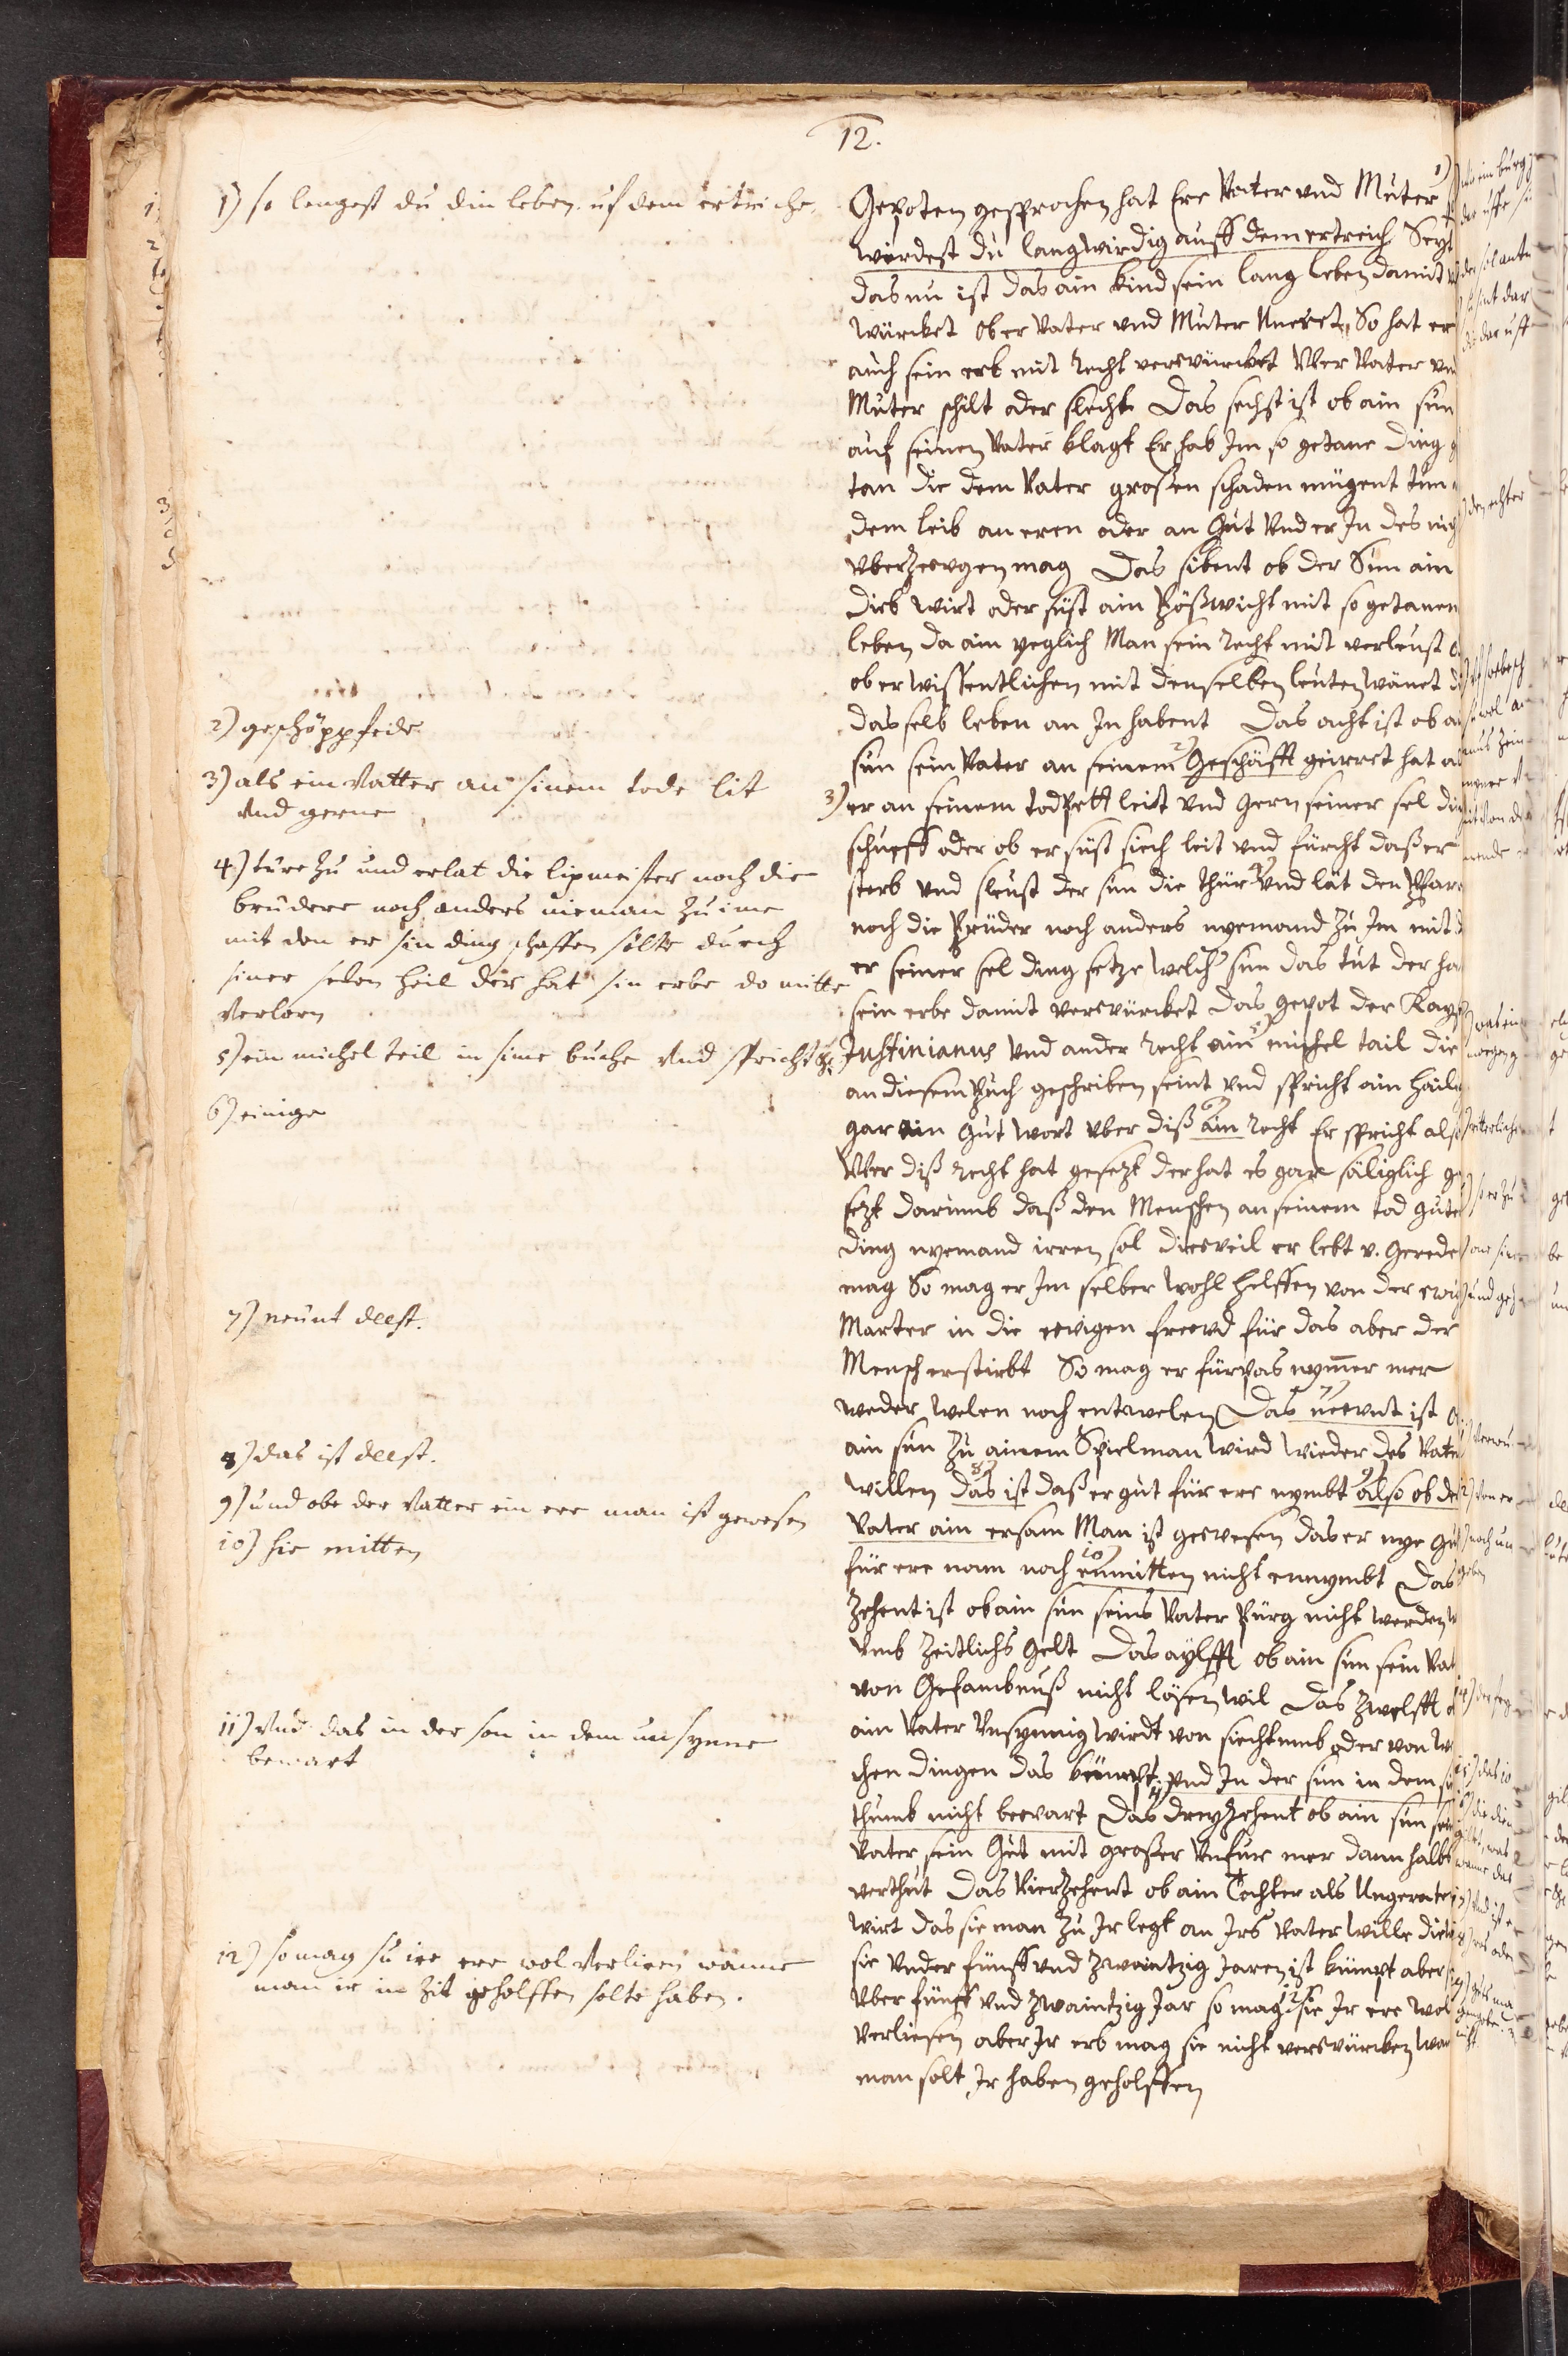 12.
1) so lengest du din leben uf dem ertriche
2) geschöppfede
3) als ein Vatter an sinem tode lit
vnd gerne
4) türe zu und erlat die lipmeister noch die
brudere noch anders nieman zu ime
mit den er sin ding schaffen sölte durch
siner selen heil der hat sin erbe do mitte
verlorn
5) ein michel teil in sime buche vnd spricht
6) einige
7) neunt deest.
8) das ist deest.
9) und obe der Vatter ein ere man ist gewesen
10) hie mitten
11) Vnd das in der son in dem unsynne
bewart
12) so mag sü ire ere wol verlieren wanne
man ir in zit geholffen solte haben.
Gepoten gesprochen hat Ere Vater vnd Muter 1)
wirdest du langwirdig auff dem ertreich Seyt
das nu ist das ain kind sein lang leben damit
würcket Ob er Vater vnd Muter Uneret, So hat er
auch sein erb mit recht verwürcket Wer Vater vnd
Muter schilt oder slecht Das sechst ist ob ain sun
auf seinen Vater klagt Er hab Im so getane ding
tan die dem Vater großen schaden mügent tun
dem leib an eren oder an Gut Vnd er In des nich
vberzeugen mag Das sibent ob der Sun ain
dieb wirt oder süst ain Pößwicht mit so getanen
leben da ain yeglich Man sein recht mit verleust
ob er wissentlichen mit denselben leuten wänet
das selb leben an In habent Das acht ist ob
sun sein Vater an seinem 2) Geschäfft geirret hat
3) er an seinem todpett leit vnd Gern seiner sel
schueff oder ob er süst siech leit vnd fürcht daß er
sterb vnd sleust der sun die thür 4) vnd lät den Pfar
noch die Prüder noch anders nyemand zu Im mit
er seiner sel ding setze welch sun das tut der ha
sein erbe damit verwürcket das gepot der Kayser
Justinianus vnd ander recht ain 5) michel tail die
an diesem Puch geschriben seint vnd spricht ain
gar ain Gut wort vber diß 6) ain recht Er spricht also
Wer diß recht hat gesezt der hat es gar säliglich ge
sezt darumb daß den Menschen an seinem tod gute
ding nyemand irren sol dieweil er lebt v. Gereden
mag So mag er Im selber wohl helffen von der ewig
Marter in die ewigen freewd für das aber der
Mensch erstirbt So mag er fürpas nymer mer
weder welen noch entwelen Das 7) neewnt ist
ain sun zu ainem Spielman wird wieder des Vater
willen 8) das ist daß er gut für ere nymbt 9) also ob der
Vater ain ersam Man ist gewesen das er nye Gut
für ere nam noch 10) enmitten nicht ennymbt Das
zehent ist ob ain sun seins Vater Pürg nicht werden
vmb zeitlichs Gelt Das aylfft ob ain sun sein Vat
von Gefanknuß nicht lösen wil Das zwelfft
ain Vater Vnsynnig wirdt von siechtumb oder von
chen dingen das kümpt 11) vnd In der sun in dem
thumb nicht bewart Das dreyzehent ob ain sun
Vater sein Gut mit großer Vnfur mer dann halbs
verthut Das Vierzehent ob ain Tochter als Ungeraten
wirt das sie man zu Ir legt an Irs Vater wille
sie Vnder fünff vnd zwaintzig Jaren ist kümpt aber
Vber fünff vnd zwaintzig Jar so mag 12) sie Ir ere wol
verliesen aber Ir erb mag sie nicht verwürcken wan
man solt Ir haben geholffen